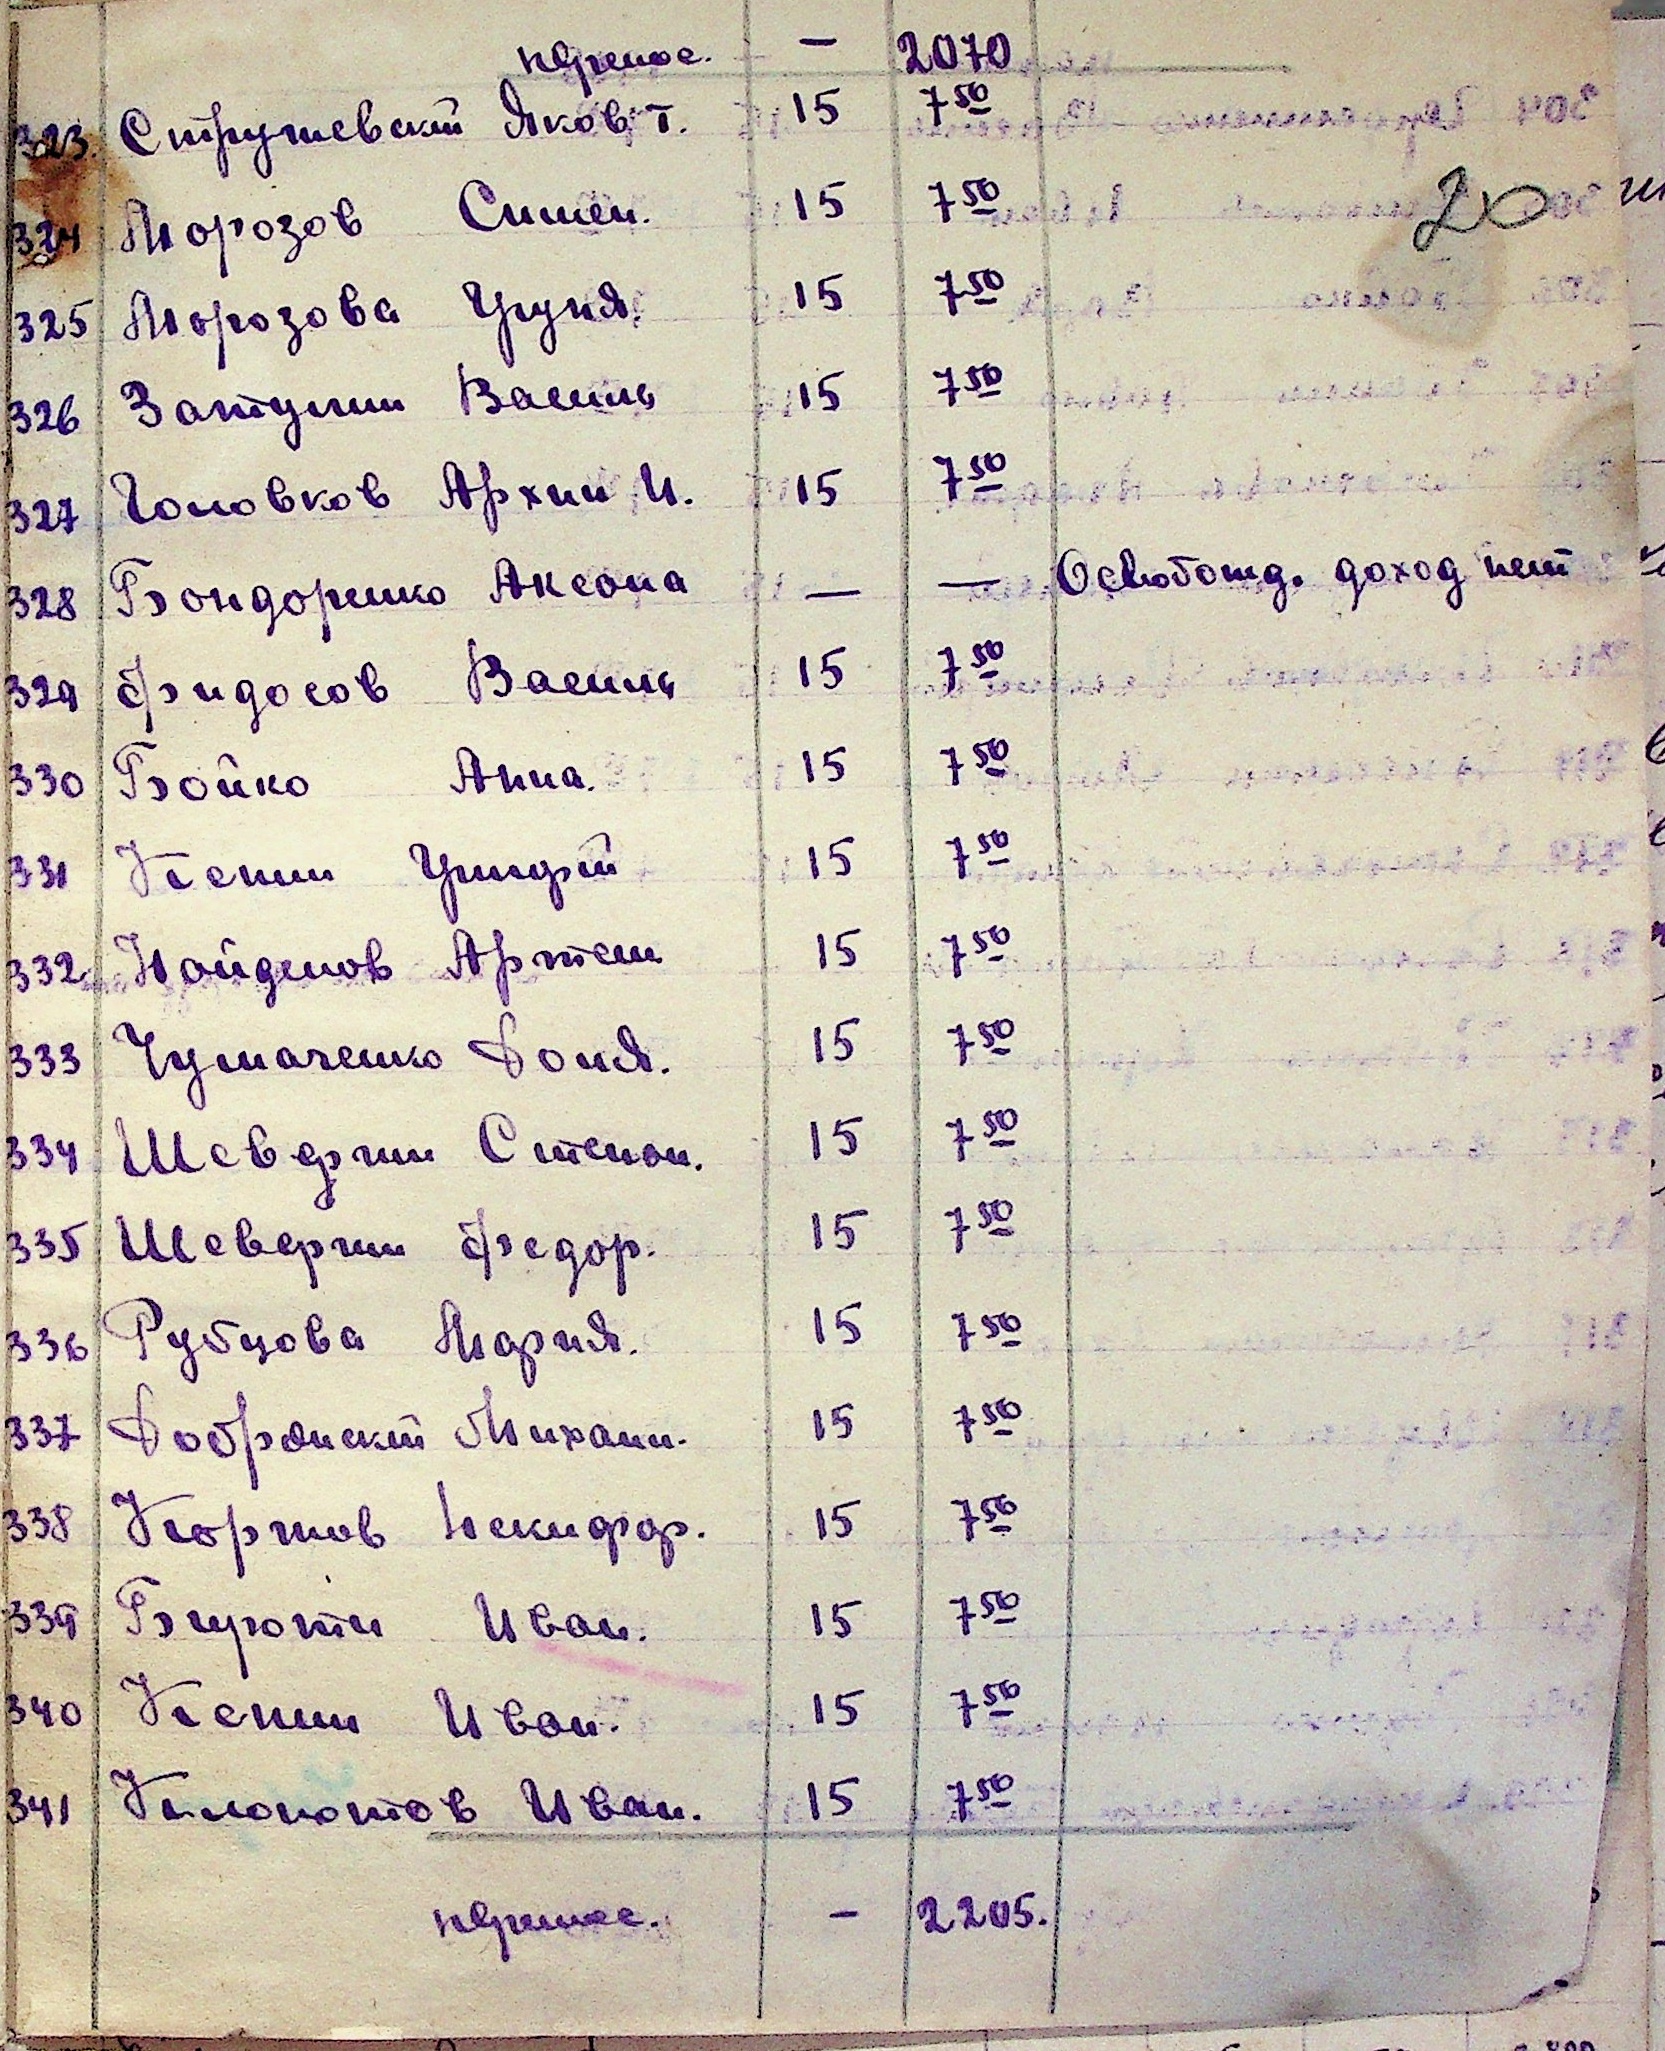 перенос. — 2070
323. Струтевский Яков Т. 15 7 50
324 Морозов Симен. 15 7 50
325 Морозова Груня. 15 7 50
326 Затулин Василь 15 7 50
327 Головков Архип И. 15 7 50
328 Бондоренко Аксана — — Освобожд. доход нет
329 Фидосов Василь 15 7 50
330 Бойко Анна. 15 7 50
331 Кепин 15 7 50
332 Найденов Артем 15 7 50
333 Чумаченко Доня. 15 7 50
334 Шеверин Степан. 15 7 50
335 Шеверин Федор. 15 7 50
336 Рубцова Мария. 15 7 50
337 Добрянский Михаил. 15 7 50
338 Некифор. 15 7 50
339 Иван. 15 7 50
340 Кепин Иван. 15 7 50
341 Клокотов Иван. 15 7 50
перенос. — 2205.
20